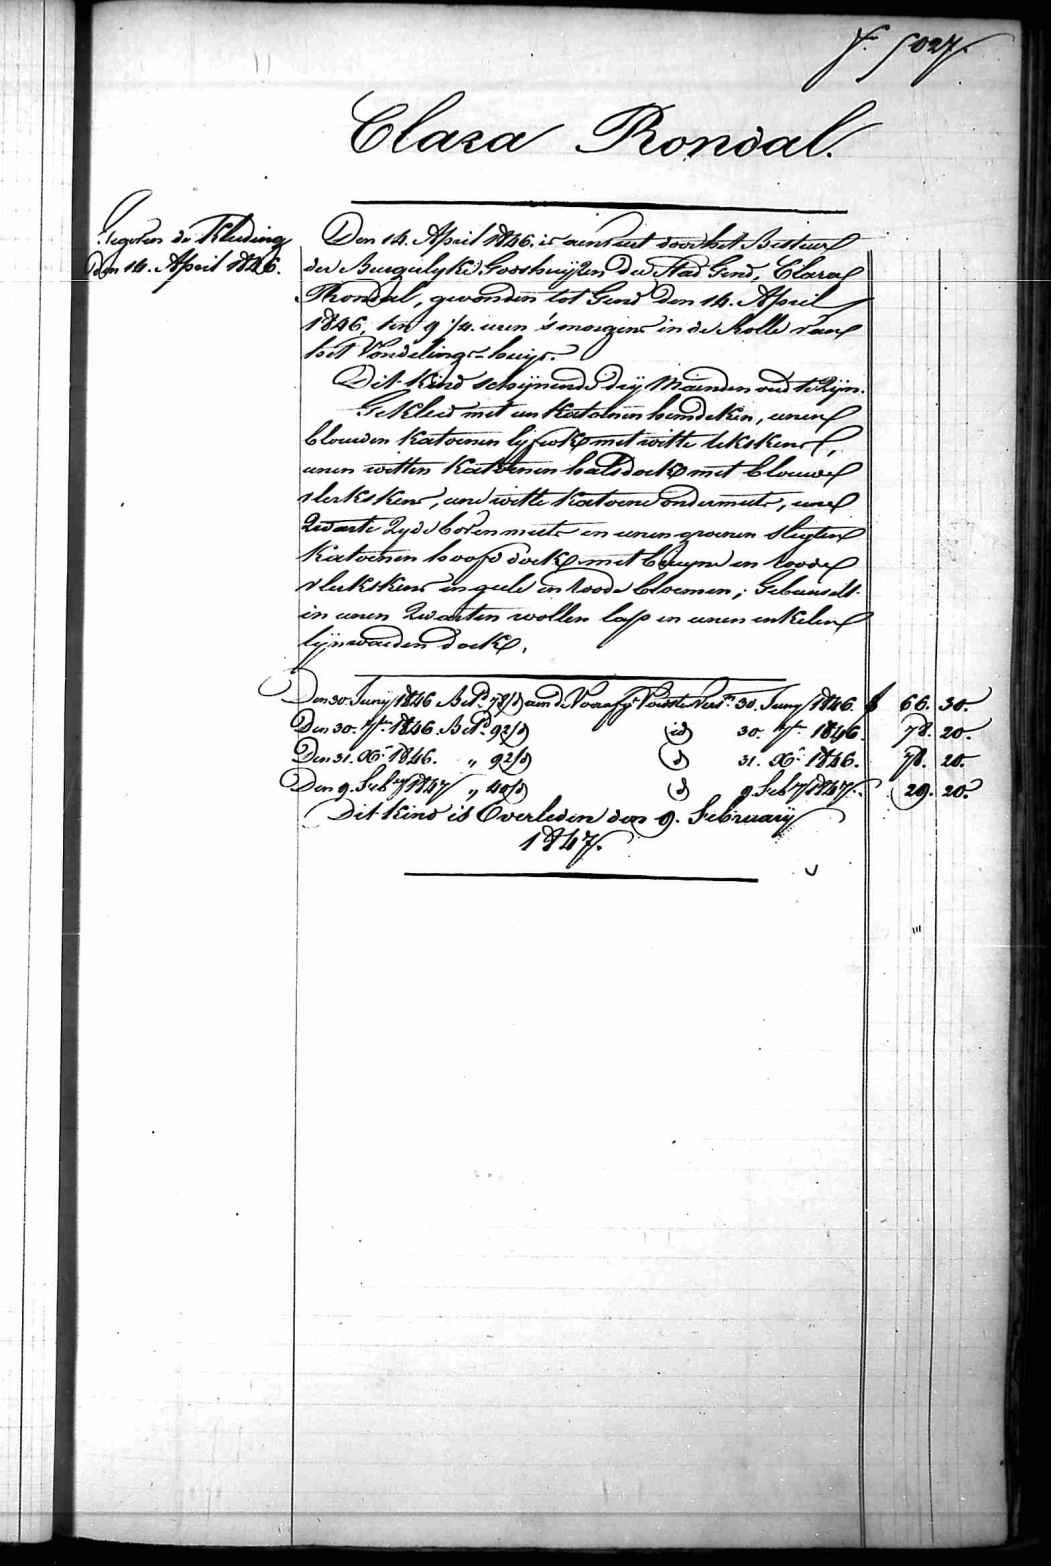 f.º 5027.
Clara Rondal.
Gegeven de Kleeding
den 14. April 1846.
Den 14. April 1846. is aenveert door het Bestuer
der Burgerlyke Godshuijzen der Stad Gend, Clara
Rondal, gevonden tot Gend den 14. April
1846, ten 9 1/4. uren 's morgens in de Rolle van
het Vondelings-huijs.
Dit Kind schijnende drij Maenden oud te Zijn.
Gekleed met een Katoenen hemdeken, eenen
blouwen Katoenen lijfrok met witte lekskens,
eenen witten Katoenen halsdoek met blouwe
vlerkskens, eene witte Katoene ondermuts, eene
Zwarte Zyde bovenmuts en eenen groenen slegten
Katoenen hoofd doek met bruyne en roode
vlerkskens en geele en roode bloemen; Gebunselt
in eenen Zwarten wollen lap en eenen enkelen
lijnwaeden doek.
Den 30. Junij 1846 Bet.d 78/d aen de Voorsz. Verst.n 30. Juny 1846. f 66. 30.
Den 30. 7.r 1846. Bet.d 92/d id 30. 7.r 1846. 78. 20.
Den 31. X.r 1846. „ 92/d d 31. X.r 1846. 78. 20.
Den 9. Feb.y 1847 „ 40/d d 9 Feb.y 1847. 29. 20.
Dit Kind is Overleden den 9. February
1847.